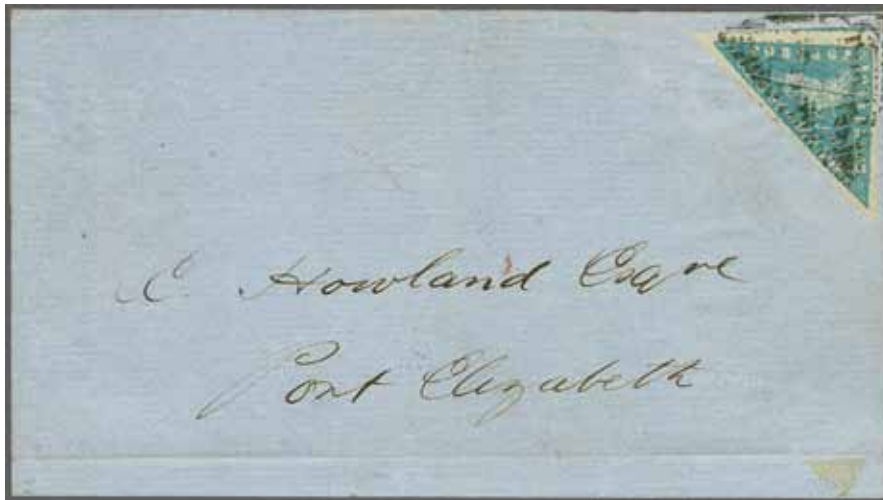 C. Howland Esqre
Port Elizabeth